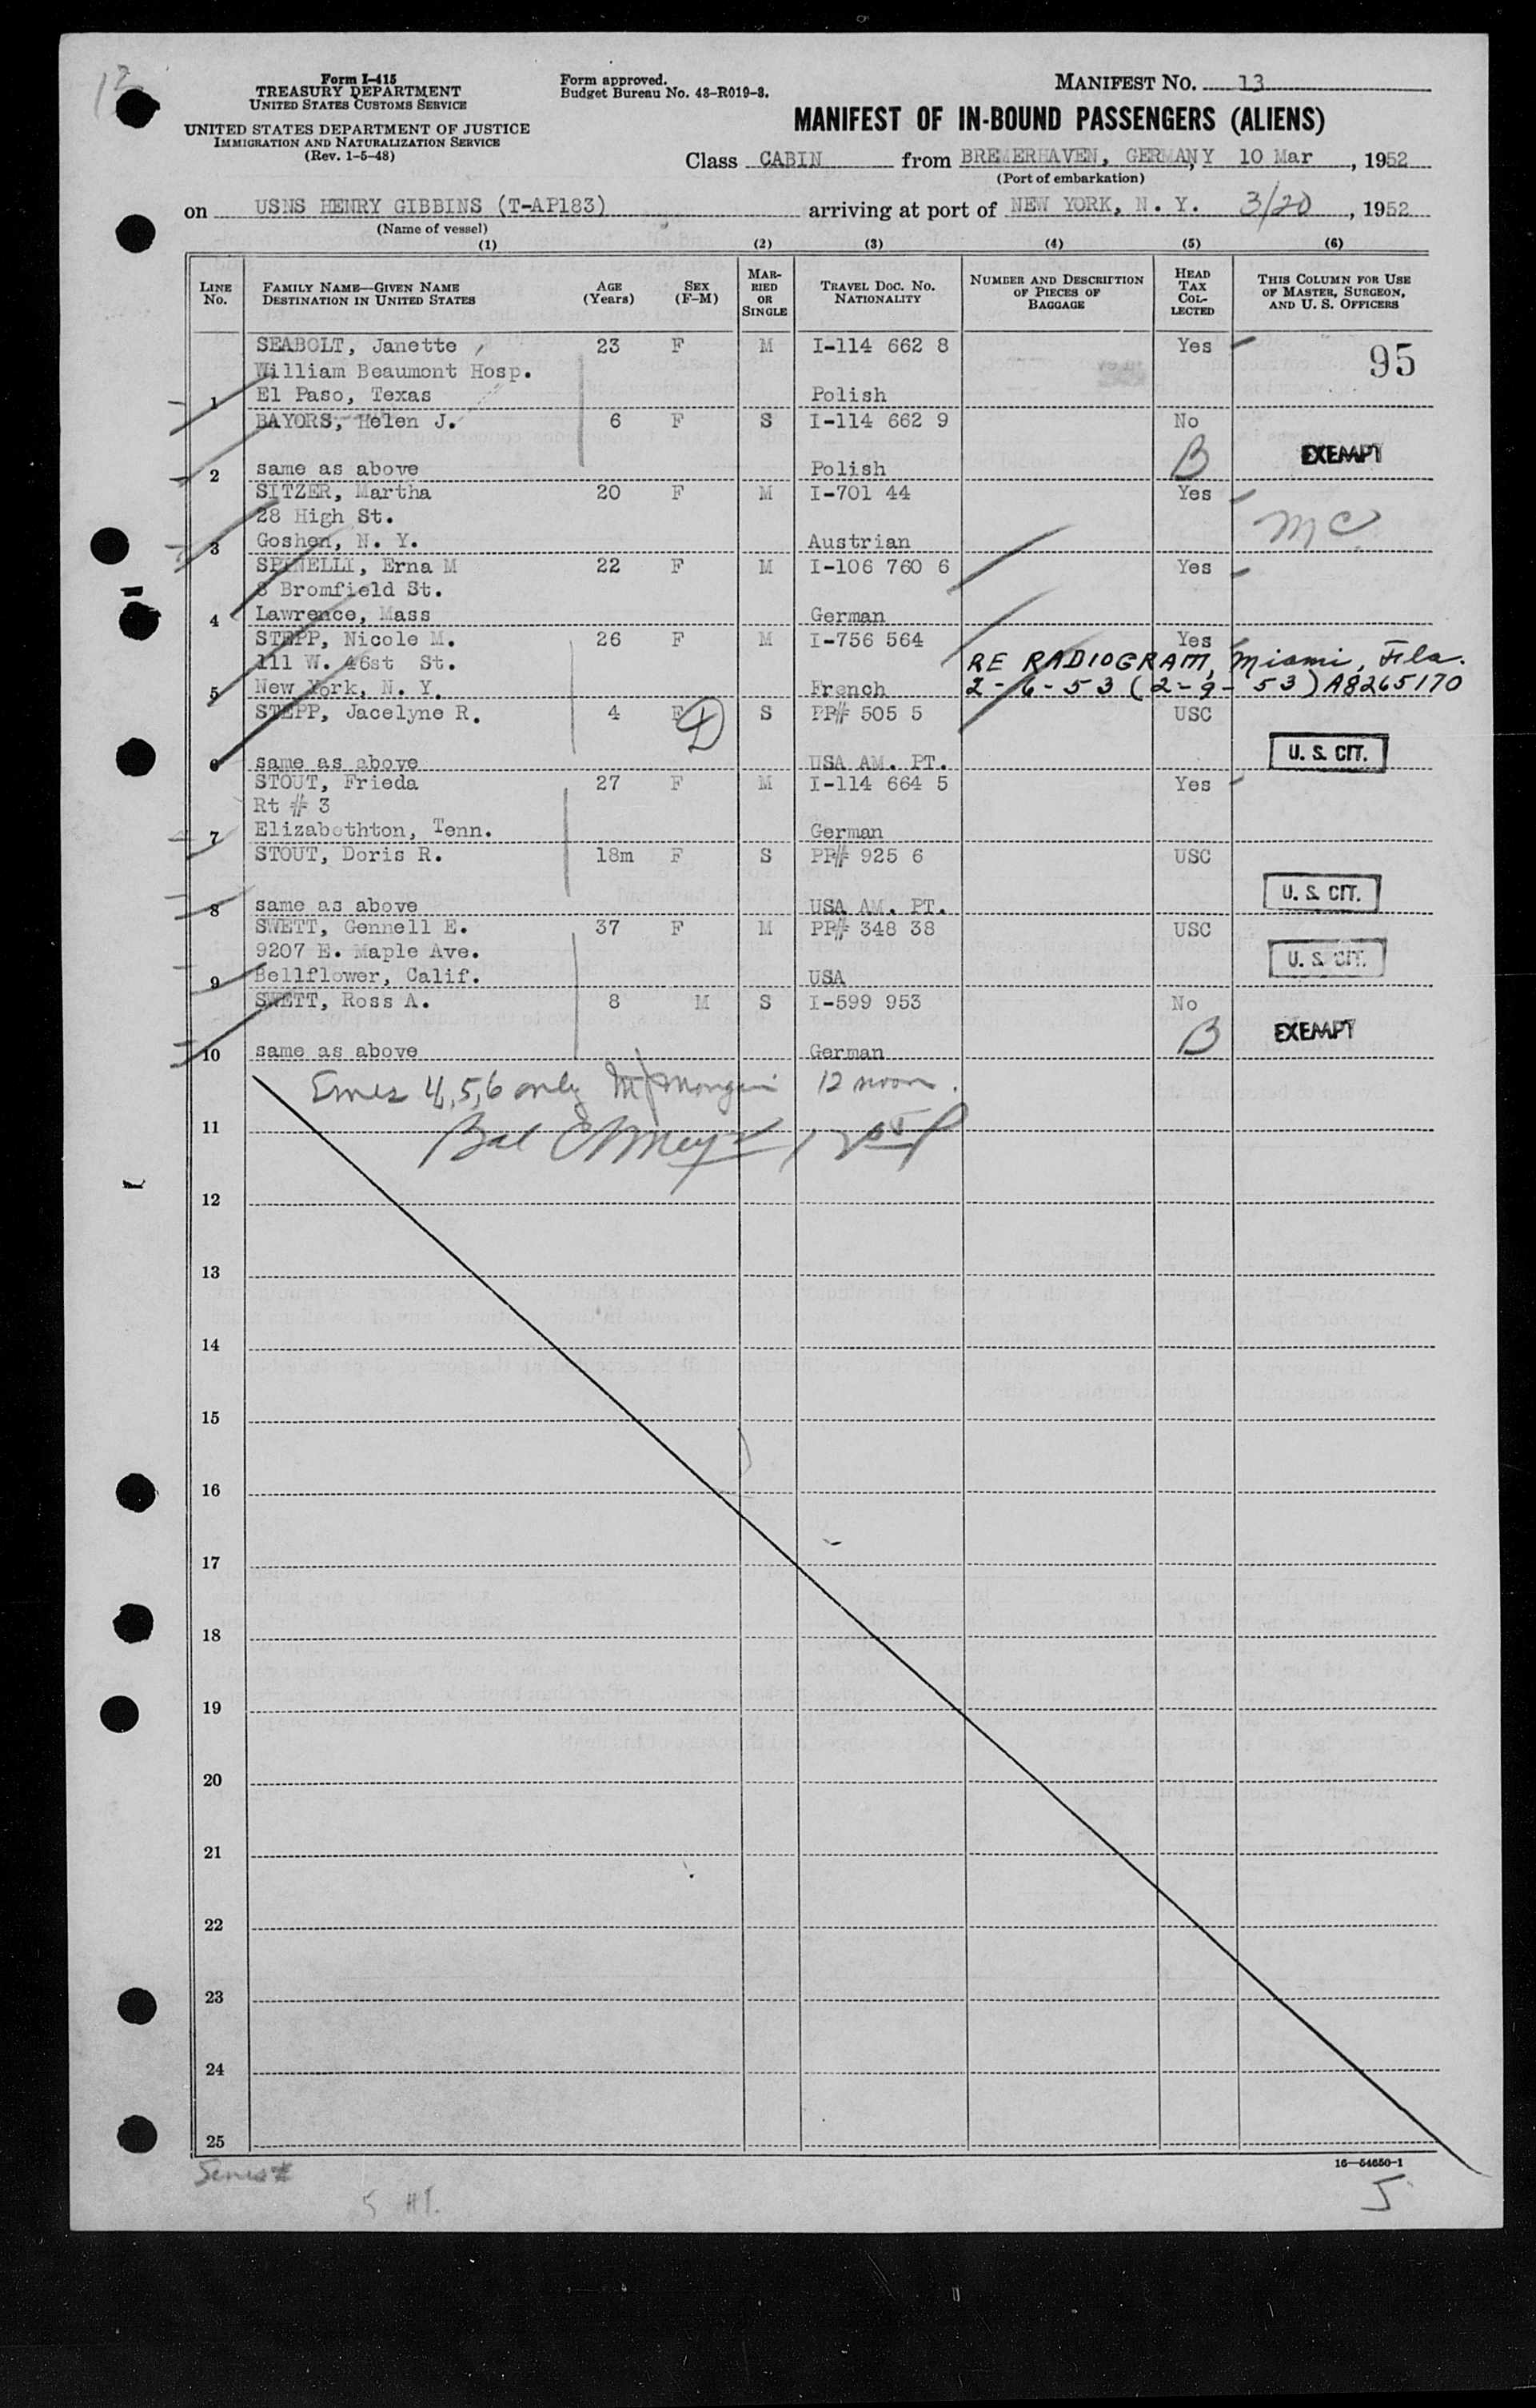 13
Form I-415
TREASURY DEPARTMENT
UNITED STATES CUSTOMS SERVICE
UNITED STATES DEPARTMENT OF JUSTICE
IMMIGRATION AND NATURALIZATION SERVICE
(Rev. 1-5-48)
Form approved.
Budget Bureau No. 43-R019-3.
MANIFEST NO. 13
MANIFEST OF IN-BOUND PASSENGERS (ALIENS)
Class CABIN from BREMERHAVEN, GERMANY 10 Mar, 1952
(Port of embarkation)
on USNS HENRY GIBBINS (T-AP183) arriving at port of NEW YORK, N. Y. 3/20, 1952
(Name of vessel)
(1) (2) (3) (4) (5) (6)
LINE NO. FAMILY NAME—GIVEN NAME DESTINATION IN UNITED STATES AGE (Years) SEX (F-M) MARRIED OR SINGLE TRAVEL DOC. NO. NATIONALITY NUMBER AND DESCRIPTION OF PIECES OF BAGGAGE HEAD TAX COLLECTED THIS COLUMN FOR USE OF MASTER, SURGEON, AND U. S. OFFICERS
SEABOLT, Janette 23 F M I-114 662 8 Yes 95
William Beaumont Hosp.
1 El Paso, Texas Polish
BAYORS, Helen J. 6 F S I-114 662 9 No
B EXEMPT
2 same as above Polish
SITZER, Martha 20 F M I-701 44 Yes
28 High St. MC
3 Goshen, N. Y. Austrian
SPINELLI, Erna M 22 F M I-106 760 6 Yes
8 Bromfield St.
4 Lawrence, Mass German
STEPP, Nicole M. 26 F M I-756 564 Yes
111 W. 46st St. RE RADIOGRAM, Miami, Fla.
5 New York, N. Y. French 2-6-53 (2-9-53) A8265170
STEPP, Jacelyne R. 4 F D S PP# 505 5 USC
U. S. CIT.
6 same as above USA AM. PT.
STOUT, Frieda 27 F M I-114 664 5 Yes
Rt # 3
7 Elizabethton, Tenn. German
STOUT, Doris R. 18m F S PP# 925 6 USC
U. S. CIT.
8 same as above USA AM. PT.
SWETT, Gennell E. 37 F M PP# 348 38 USC
9207 E. Maple Ave. U. S. CIT.
9 Bellflower, Calif. USA
SWETT, Ross A. 8 M S I-599 953 No
B EXEMPT
10 same as above German
4, 5, 6 only 12 noon
11 Bal
12
13
14
15
16
17
18
19
20
21
22
23
24
25
16—54650-1
5 HT. 5